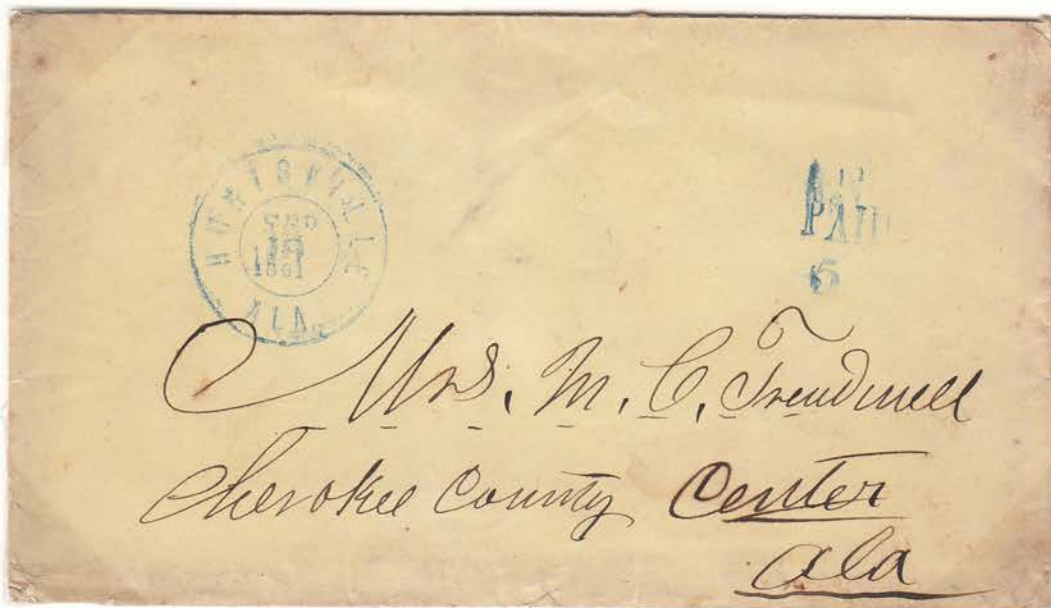 HUNTSVILLE
SEP
18
1861
ALA.
PAID
5
Mrs. M. C. Treadwell
Cherokee County Center
Ala